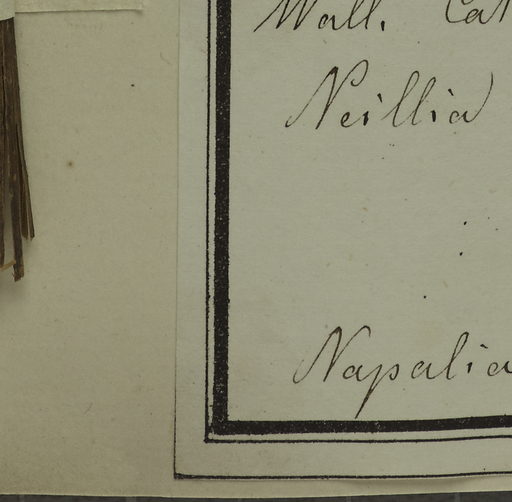 Wall. Cat
Neillia
Napalia